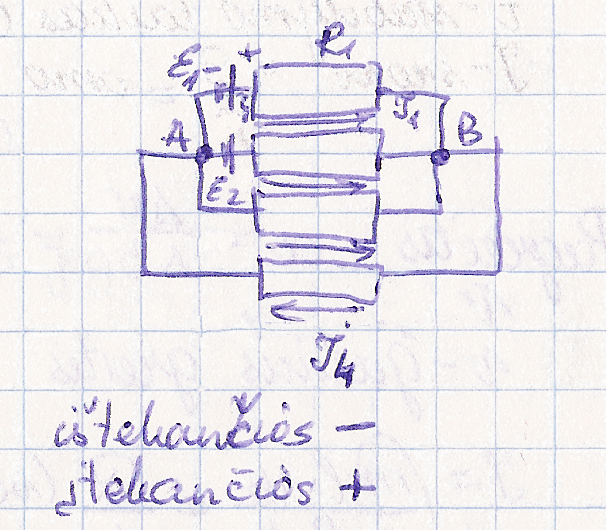 R₁
E₁ - +
I₁
A B
E₂
I₄
ištekančios -
įtekančios +